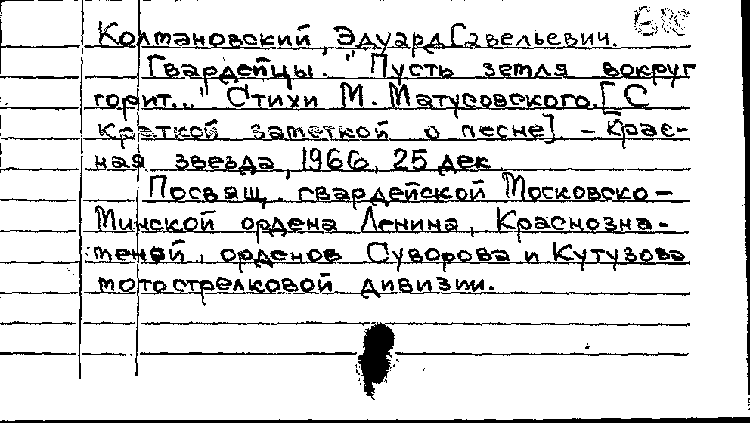 Колмановский, Эдуард Савельевич.
Гвардейцы. "Пусть земля вокруг
горит..." Стихи М. Матусовского. [С
краткой заметкой о песне] - Крас-
ная звезда, 1966, 25 дек
Посвящ. гвардейской Московско-
Минской ордена Ленина, Краснозна-
менной, орденов Суворова и Кутузова
мотострелковой дивизии.